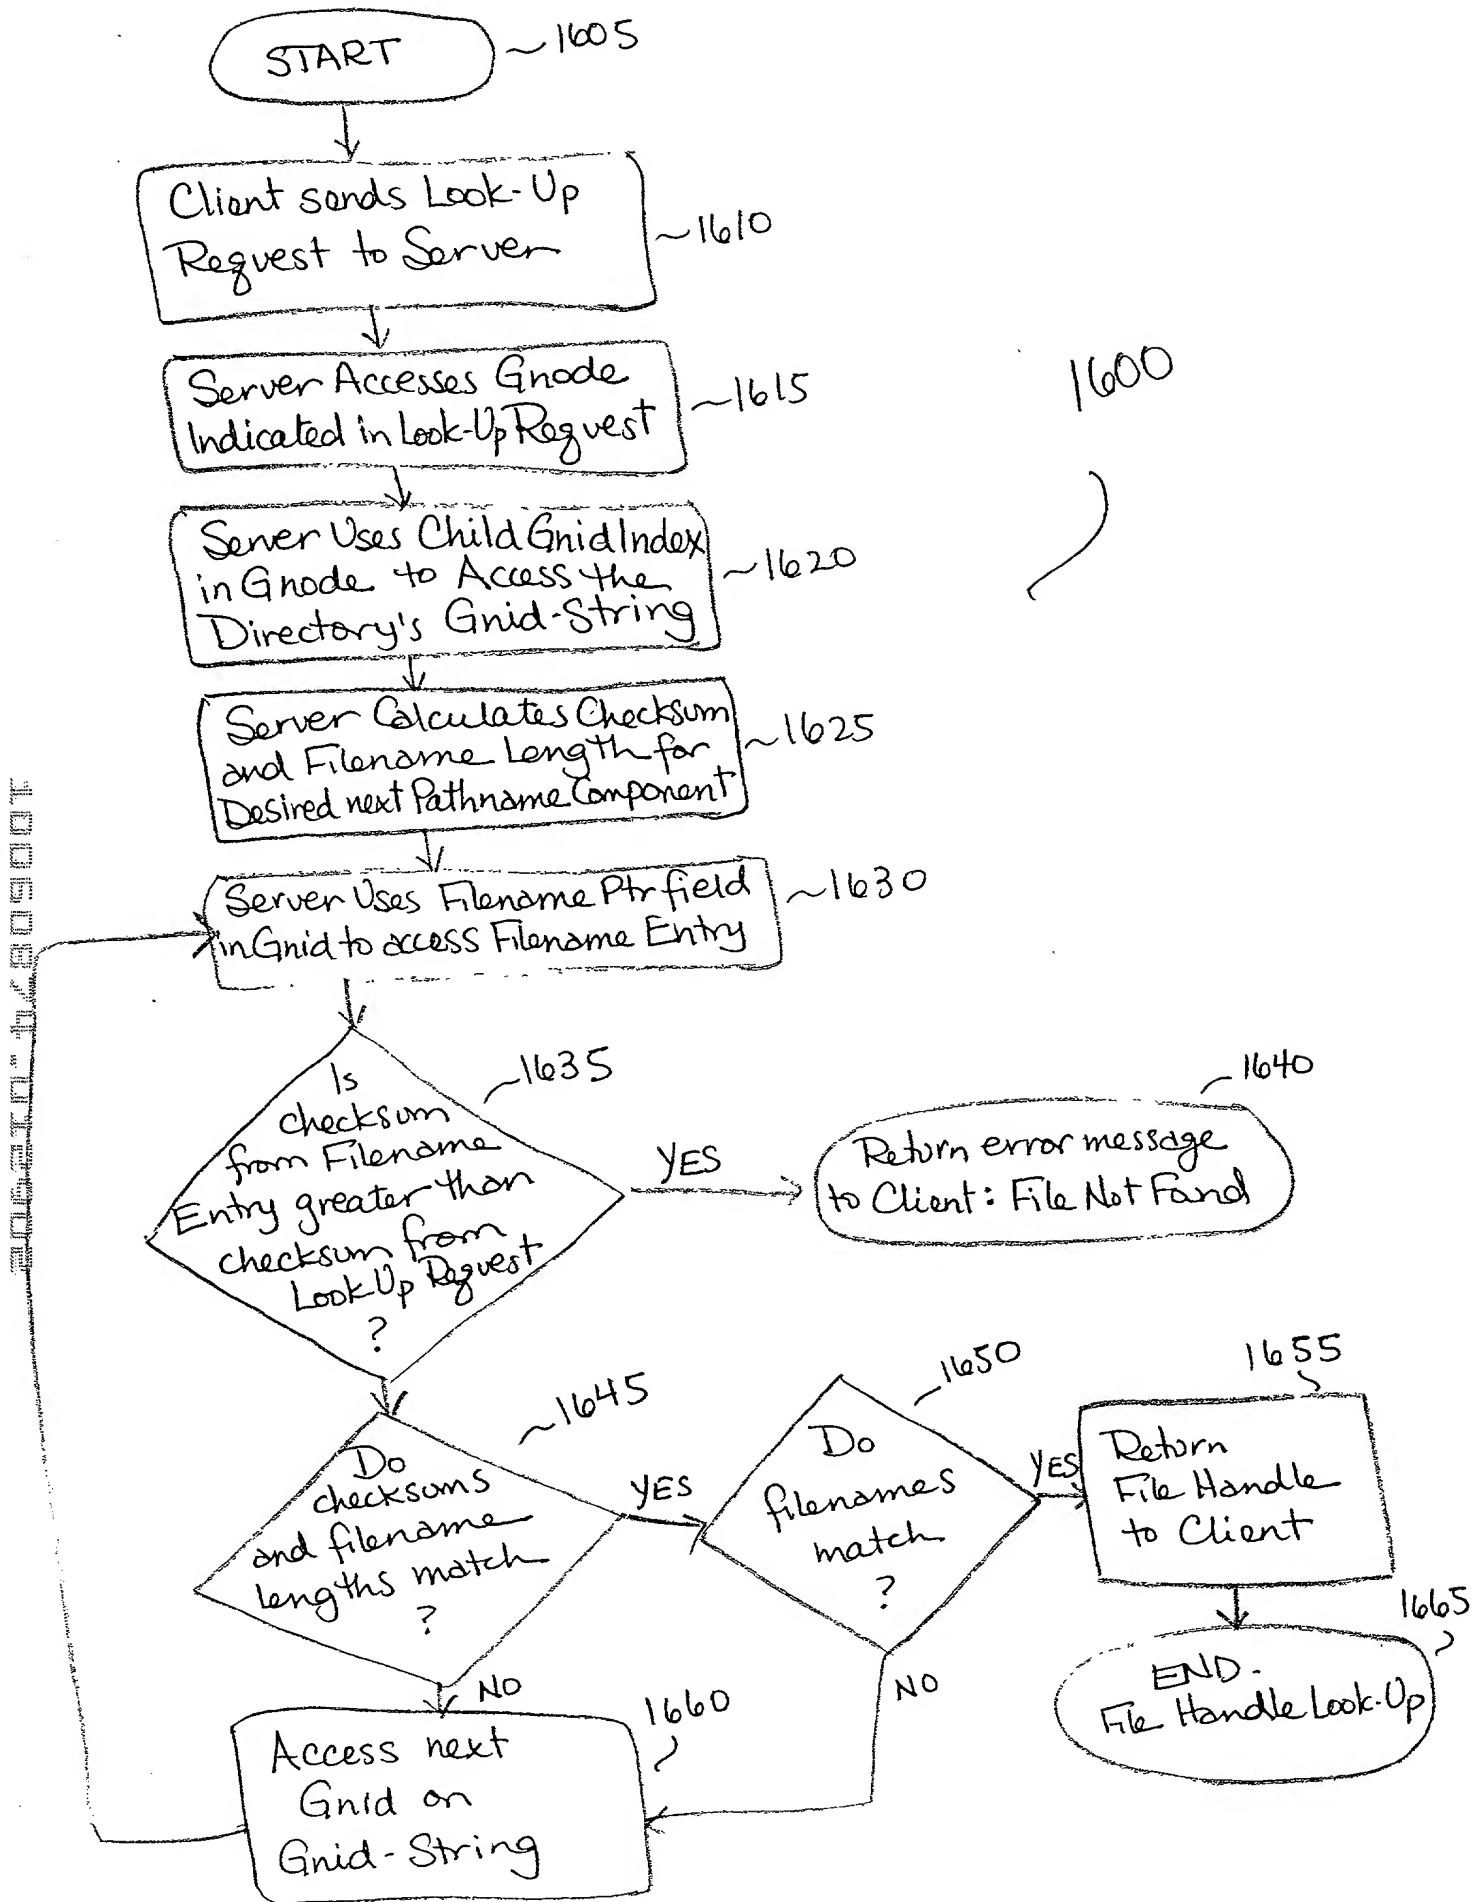 START
1605
Client sends Look-Up
Request to Server
1610
Server Accesses Gnode
Indicated in Look-Up Request
1615
1600
Server Uses Child Gnid Index
in Gnode to Access the
Directory's Gnid-String
1620
Server Calculates Checksum
and Filename Length for
Desired next Pathname Component
1625
Server Uses Filename Ptr field
in Gnid to access Filename Entry
1630
Is
checksum
from Filename
Entry greater than
checksum from
Look Up Request
?
1635
YES
1640
Return error message
to Client: File Not Found
Do
checksums
and filename
lengths match
?
1645
YES
Do
filenames
match
?
1650
YES
1655
Return
File Handle
to Client
1665
END.
File Handle Look-Up
NO
NO
1660
Access next
Gnid on
Gnid-String